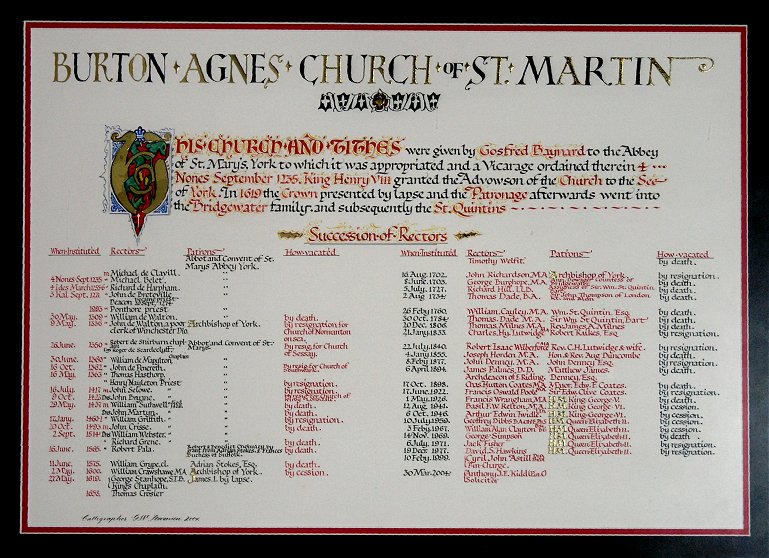 BURTON AGNES CHURCH OF ST. MARTIN
THIS CHURCH AND TITHES were given by Gosfred Baynard to the Abbey
of St. Mary's, York to which it was appropriated and a Vicarage ordained therein 4
Nones September 1235. King Henry VIII granted the Advowson of the Church to the See
of York. In 1619 the Crown presented by lapse and the Patronage afterwards went into
the Bridgewater family, and subsequently the St. Quintins
Succession of Rectors
When Instituted Rectors Patrons How vacated
Abbot and Convent of St.
Marys Abbey York.
Michael de Clavill.
4 Nones Sept 1235 Michael Belet.
4 Ides March 1256 Richard de Harpham.
3 Kal. Sept. 1271 John de Bretoville
Deacon 19 Sept. 1274
1285 Ponthore priest
30 May. 1309 William de Walton. by death.
9 Mag. 1336 John de Walton, a poor Archbishop of York. by resignation for
clerk of Winchester Dio. Church of Nonnanton
on sea.
26 June. 1350 Robert de Stuirburn chapl. Abbot and Convent of St. by resig. for Church
Roger de Scardeclyf. Marys of Sessay.
30 June. 1360 William de Mapilton, by death.
16 Oct. 1362 John de Penereth.
16 May. 1363 Thomas Hasthorp.
Henry Nayleton Priest by resignation.
16 July. 1417 John Selowe. by resignation.
9 Oct. 1425 John Brayne.
29 May. 1439 William Suthwell by death.
John Martyn. by death.
17 Jany. William Griffith. by resignation.
20 Oct. 1493 John Crisse. by death.
2 Sept. 1514 William Webster. by death.
Richard Grene. by death.
16 June. 1565 Robert Pala. by death.
Duchess of Suffolk.
11 June. 1575. William Grype. cl. Adrian Stokes, Esq. by death.
2 May. 1600. William Crawshawe, M.A Archbishop of York. by cession.
27 May. 1619. George Stanhope, S.T.B. James I. by lapse.
King's Chaplain.
1653. Thomas Crosier
When Instituted Rectors Patrons How vacated
Timothy Welfit. by death.
16 Aug. 1702. John Richardson, M.A. Archbishop of York. by resignation.
8 June. 1703. George Burghope, M.A. by death.
3 July. 1727. Richard Hill, LL.B. by death.
2 Aug. 1734. Thomas Dade, B.A. Dr. John Thompson of London by death.
26 Feby. 1760. William Cayley, M.A. Wm. St. Quintin. Esq. by death.
30 Oct. 1784. Thomas Dade M.A. Sir Wm. St. Quintin, Bart by death.
20 Dec. 1806. Thomas Milnes M.A. Rev. James A. Milnes by death.
21 Jany. 1833. Charles Hy. Lutwidge Robert Raikes, Esq. by resignation.
22 July. 1840. Robert Isaac Wilberforce Rev. C.H. Lutwidge & wife. by resignation.
4 Jany. 1855. Joseph Horden M.A. Hon. & Rev. Aug Duncombe by death.
8 Feby. 1877. John Denney M.A. John Denney Esq. by resignation.
6 April. 1894. James Palmes, D.D. Matthew James by death.
Archdeacon of E. Riding. Denney, Esq.
17 Oct. 1898. Chas. Hutton Coates M.A. Major Edw. F. Coates. by death.
17 June. 1922. Francis Oswald Poole Sir Edw. Clive Coates. by resignation.
1 May. 1928. Francis Wrangham, M.A. H.M. King George V. by death.
12 Aug. 1941. Basil F.W. Relton, M.A. H.M. King George VI. by cession.
6 Oct. 1946. Arthur Edwin Twidle H.M. King George VI. by cession.
10 July 1959. H.M. Queen Elizabeth II. by death.
3 Feby. 1967. William Alan Clayton H.M. Queen Elizabeth II. by cession.
14 Nov. 1969. George Simpson H.M. Queen Elizabeth II. by death.
6 July. 1971. Jack Fisher H.M. Queen Elizabeth II. by resignation.
19 Decr. 1977. David, S. Hawkins H.M. Queen Elizabeth II. by death.
10 Feby. 1999. Cyril John Astill by resignation.
in Charge.
30 Mar. 2004. Anthony J.E. Kidd H.M. Queen Elizabeth II. by cession.
Solicitor
Calligrapher 2004